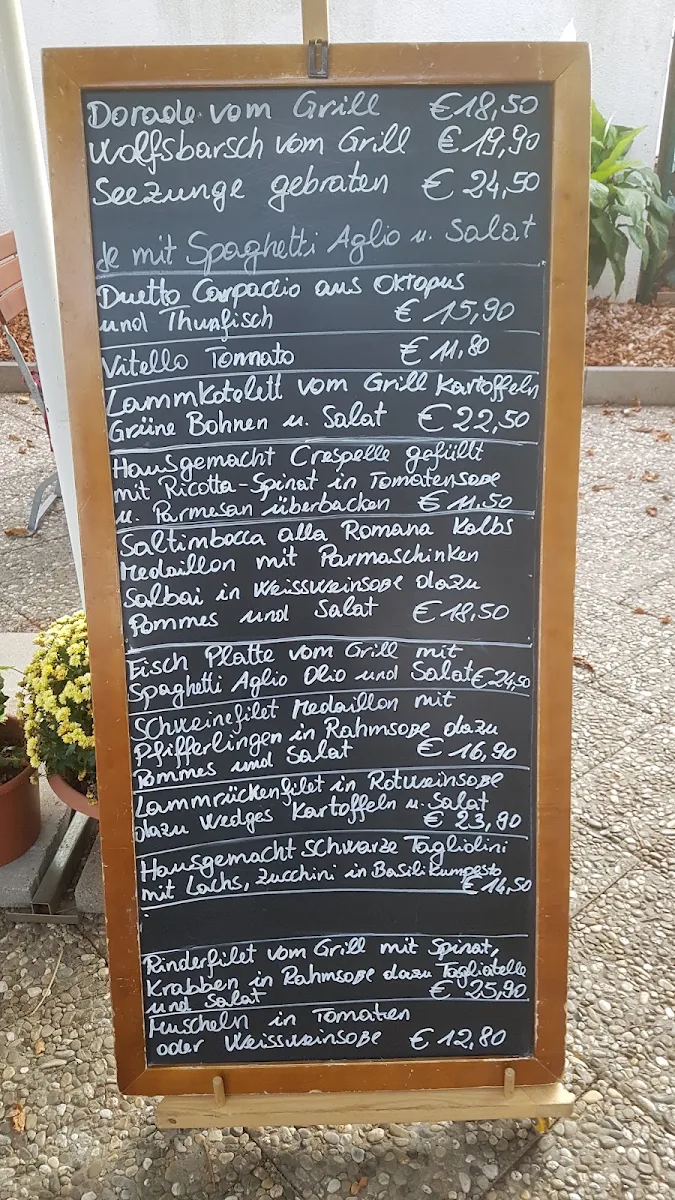 Dorade vom Grill €18,50
Wolfsbarsch vom Grill €19,90
Seezunge gebraten €24,50
Je mit Spaghetti Aglio u. Salat
Duetto Carpaccio aus Oktopus
und Thunfisch €15,90
Vitello Tonnato €11,80
Lammkotelett vom Grill Kartoffeln
Grüne Bohnen u. Salat €22,50
Hausgemacht Crespelle gefüllt
mit Ricotta-Spinat in Tomatensoße
u. Parmesan überbacken €11.50
Saltimbocca alla Romana Kalbs
Medaillon mit Parmaschinken
Salbai in Weissweinsoße dazu
Pommes und Salat €18,50
Fisch Platte vom Grill mit
Spaghetti Aglio Olio und Salat €24,50
Schweinefilet Medaillon mit
Pfifferlingen in Rahmsoße dazu
Pommes und Salat €16,90
Lammrückenfilet in Rotweinsoße
dazu Wedges Kartoffeln u. Salat
€23,90
Hausgemacht schwarze Tagliolini
mit Lachs, Zucchini in Basilikumpesto
€14,50
Rinderfilet vom Grill mit Spinat,
Krabben in Rahmsoße dazu Tagliatelle
und Salat €25,90
Muscheln in Tomaten
oder Weissweinsoße €12,80